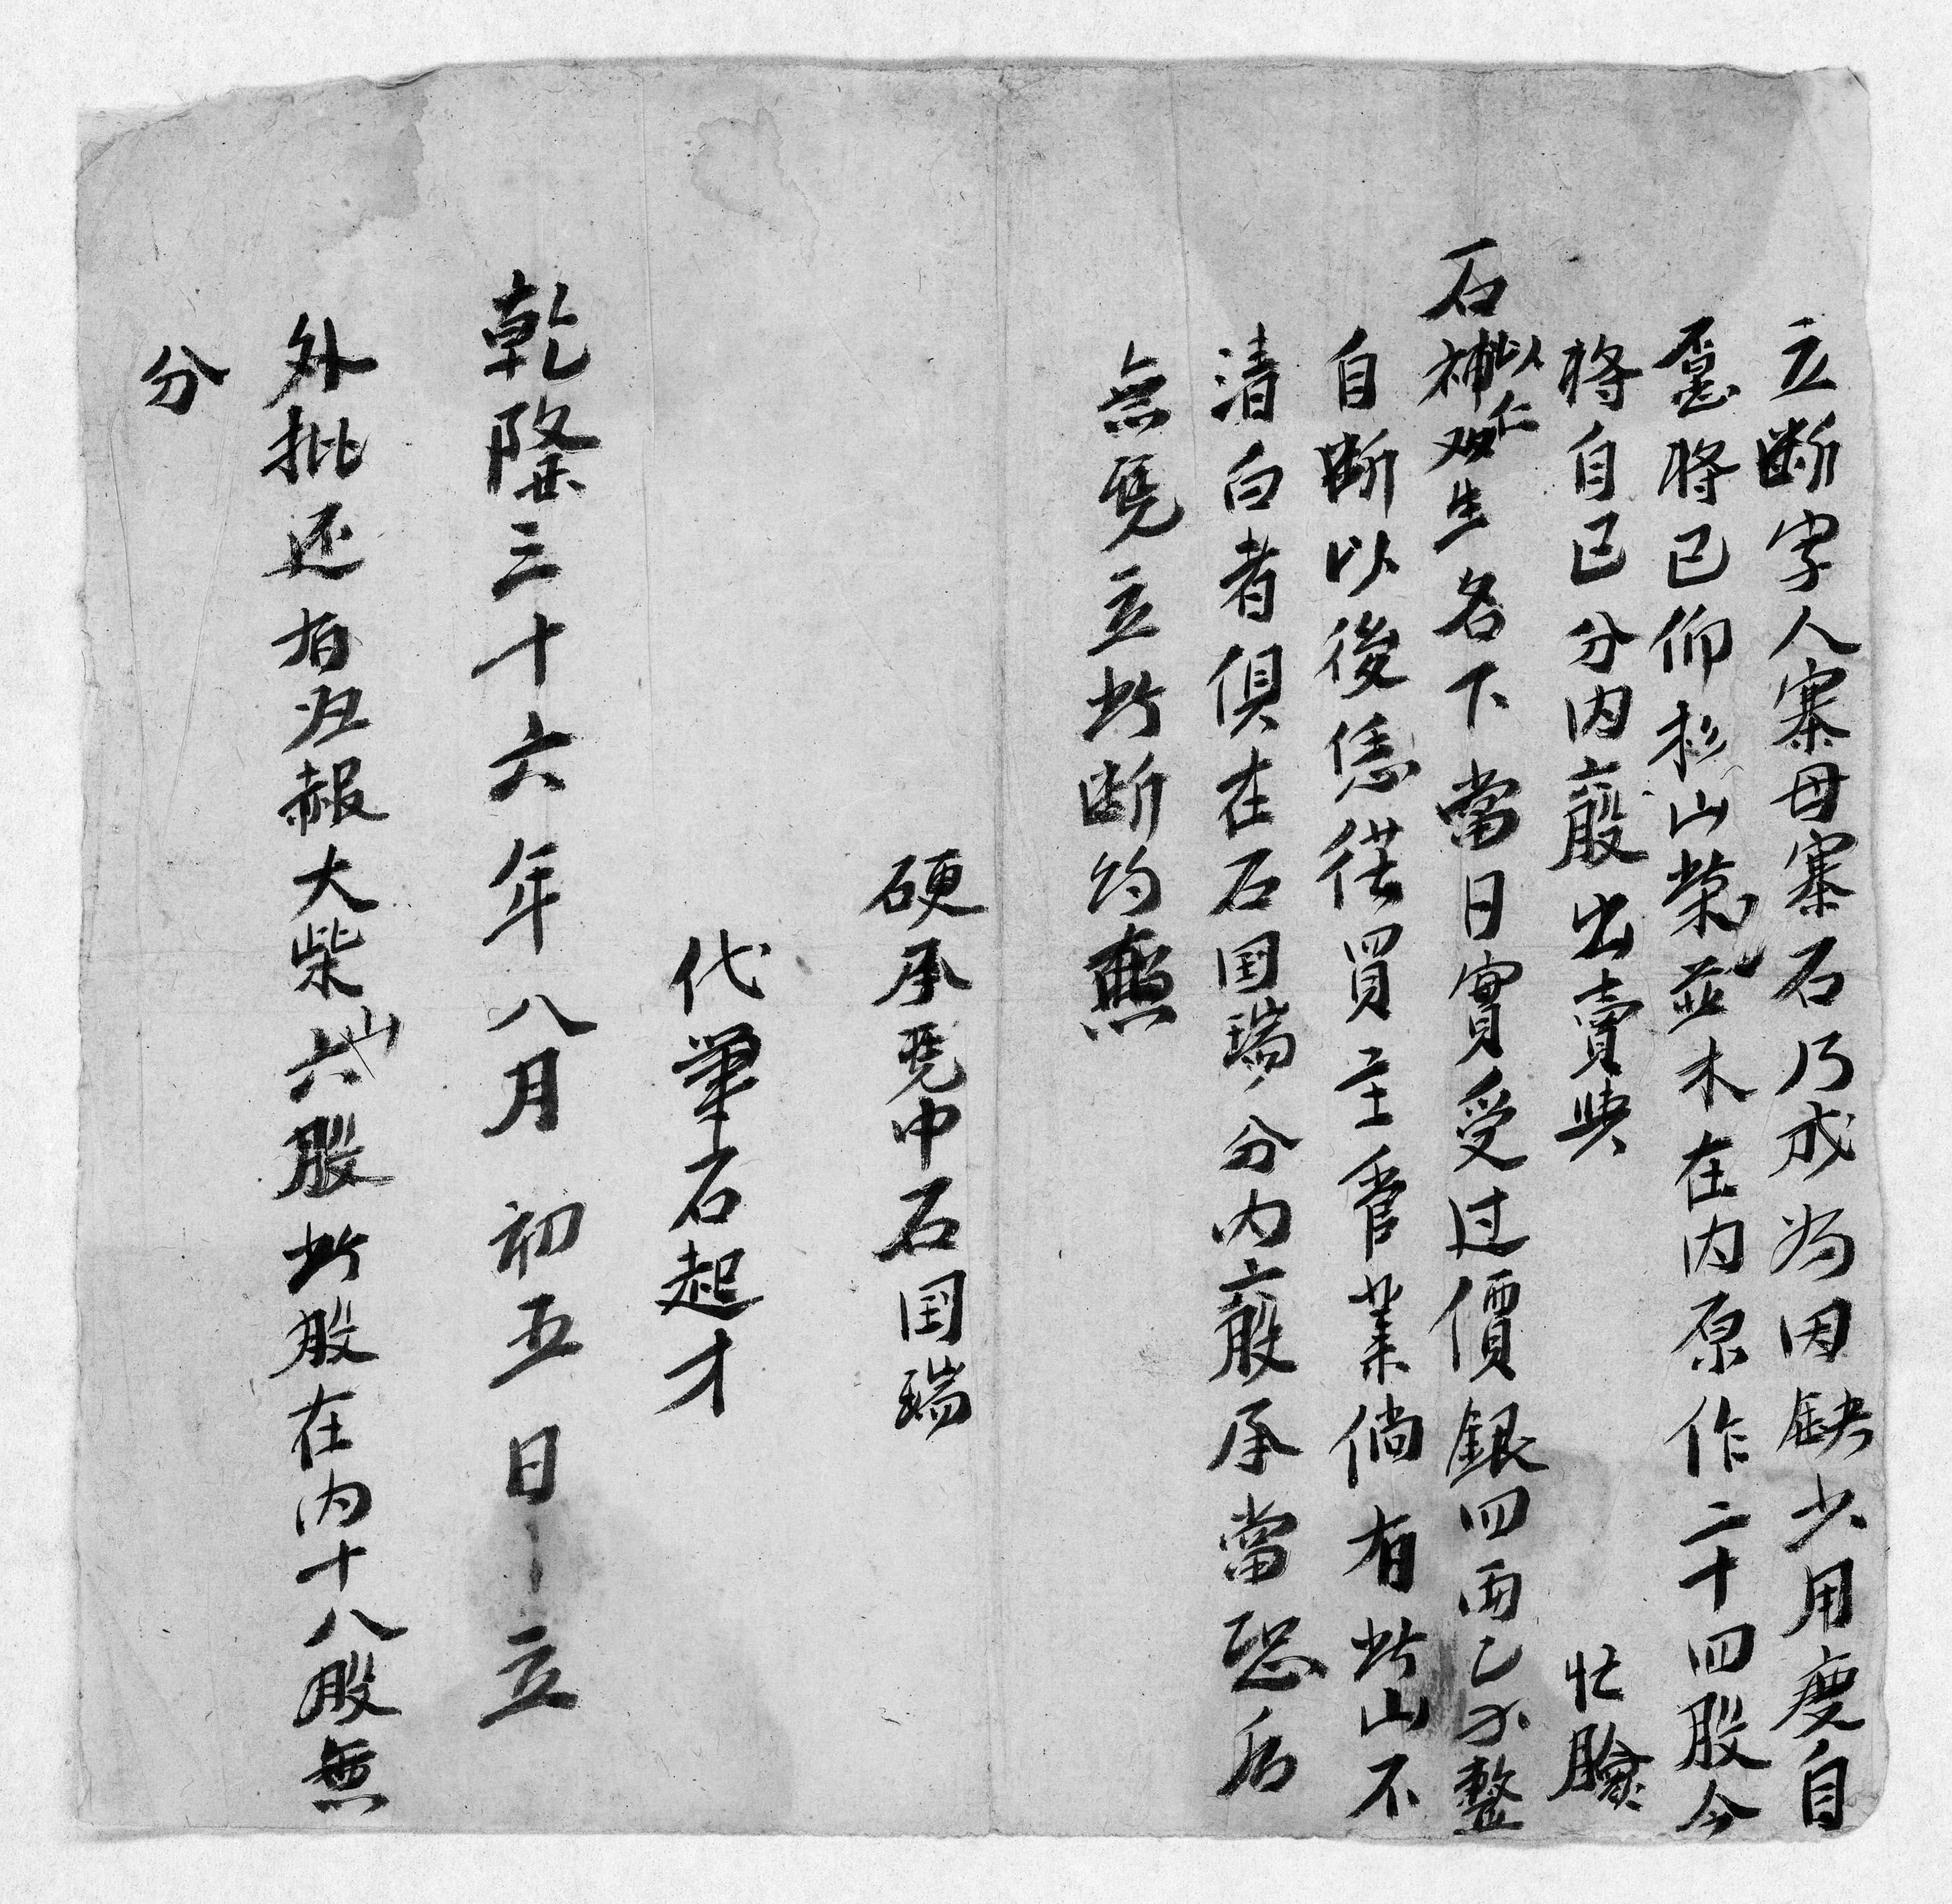 立断字人寨母寨石乃成为因缺少用度自
愿将已仰杉山荣並木在内原作二十四股今
将自已分内股出賣与 忙臉
石補以仁双生名下當日實受过價銀四両乙分整
自断以後凭從買主管業倘有此山不
清白者俱在石国瑞分内股承當恐后
無凭立此断约照
硬承凭中石国瑞
代筆石起才
乾隆三十六年八月初五日立
外批还有丑報大柴山六股此股在内十八股無
分